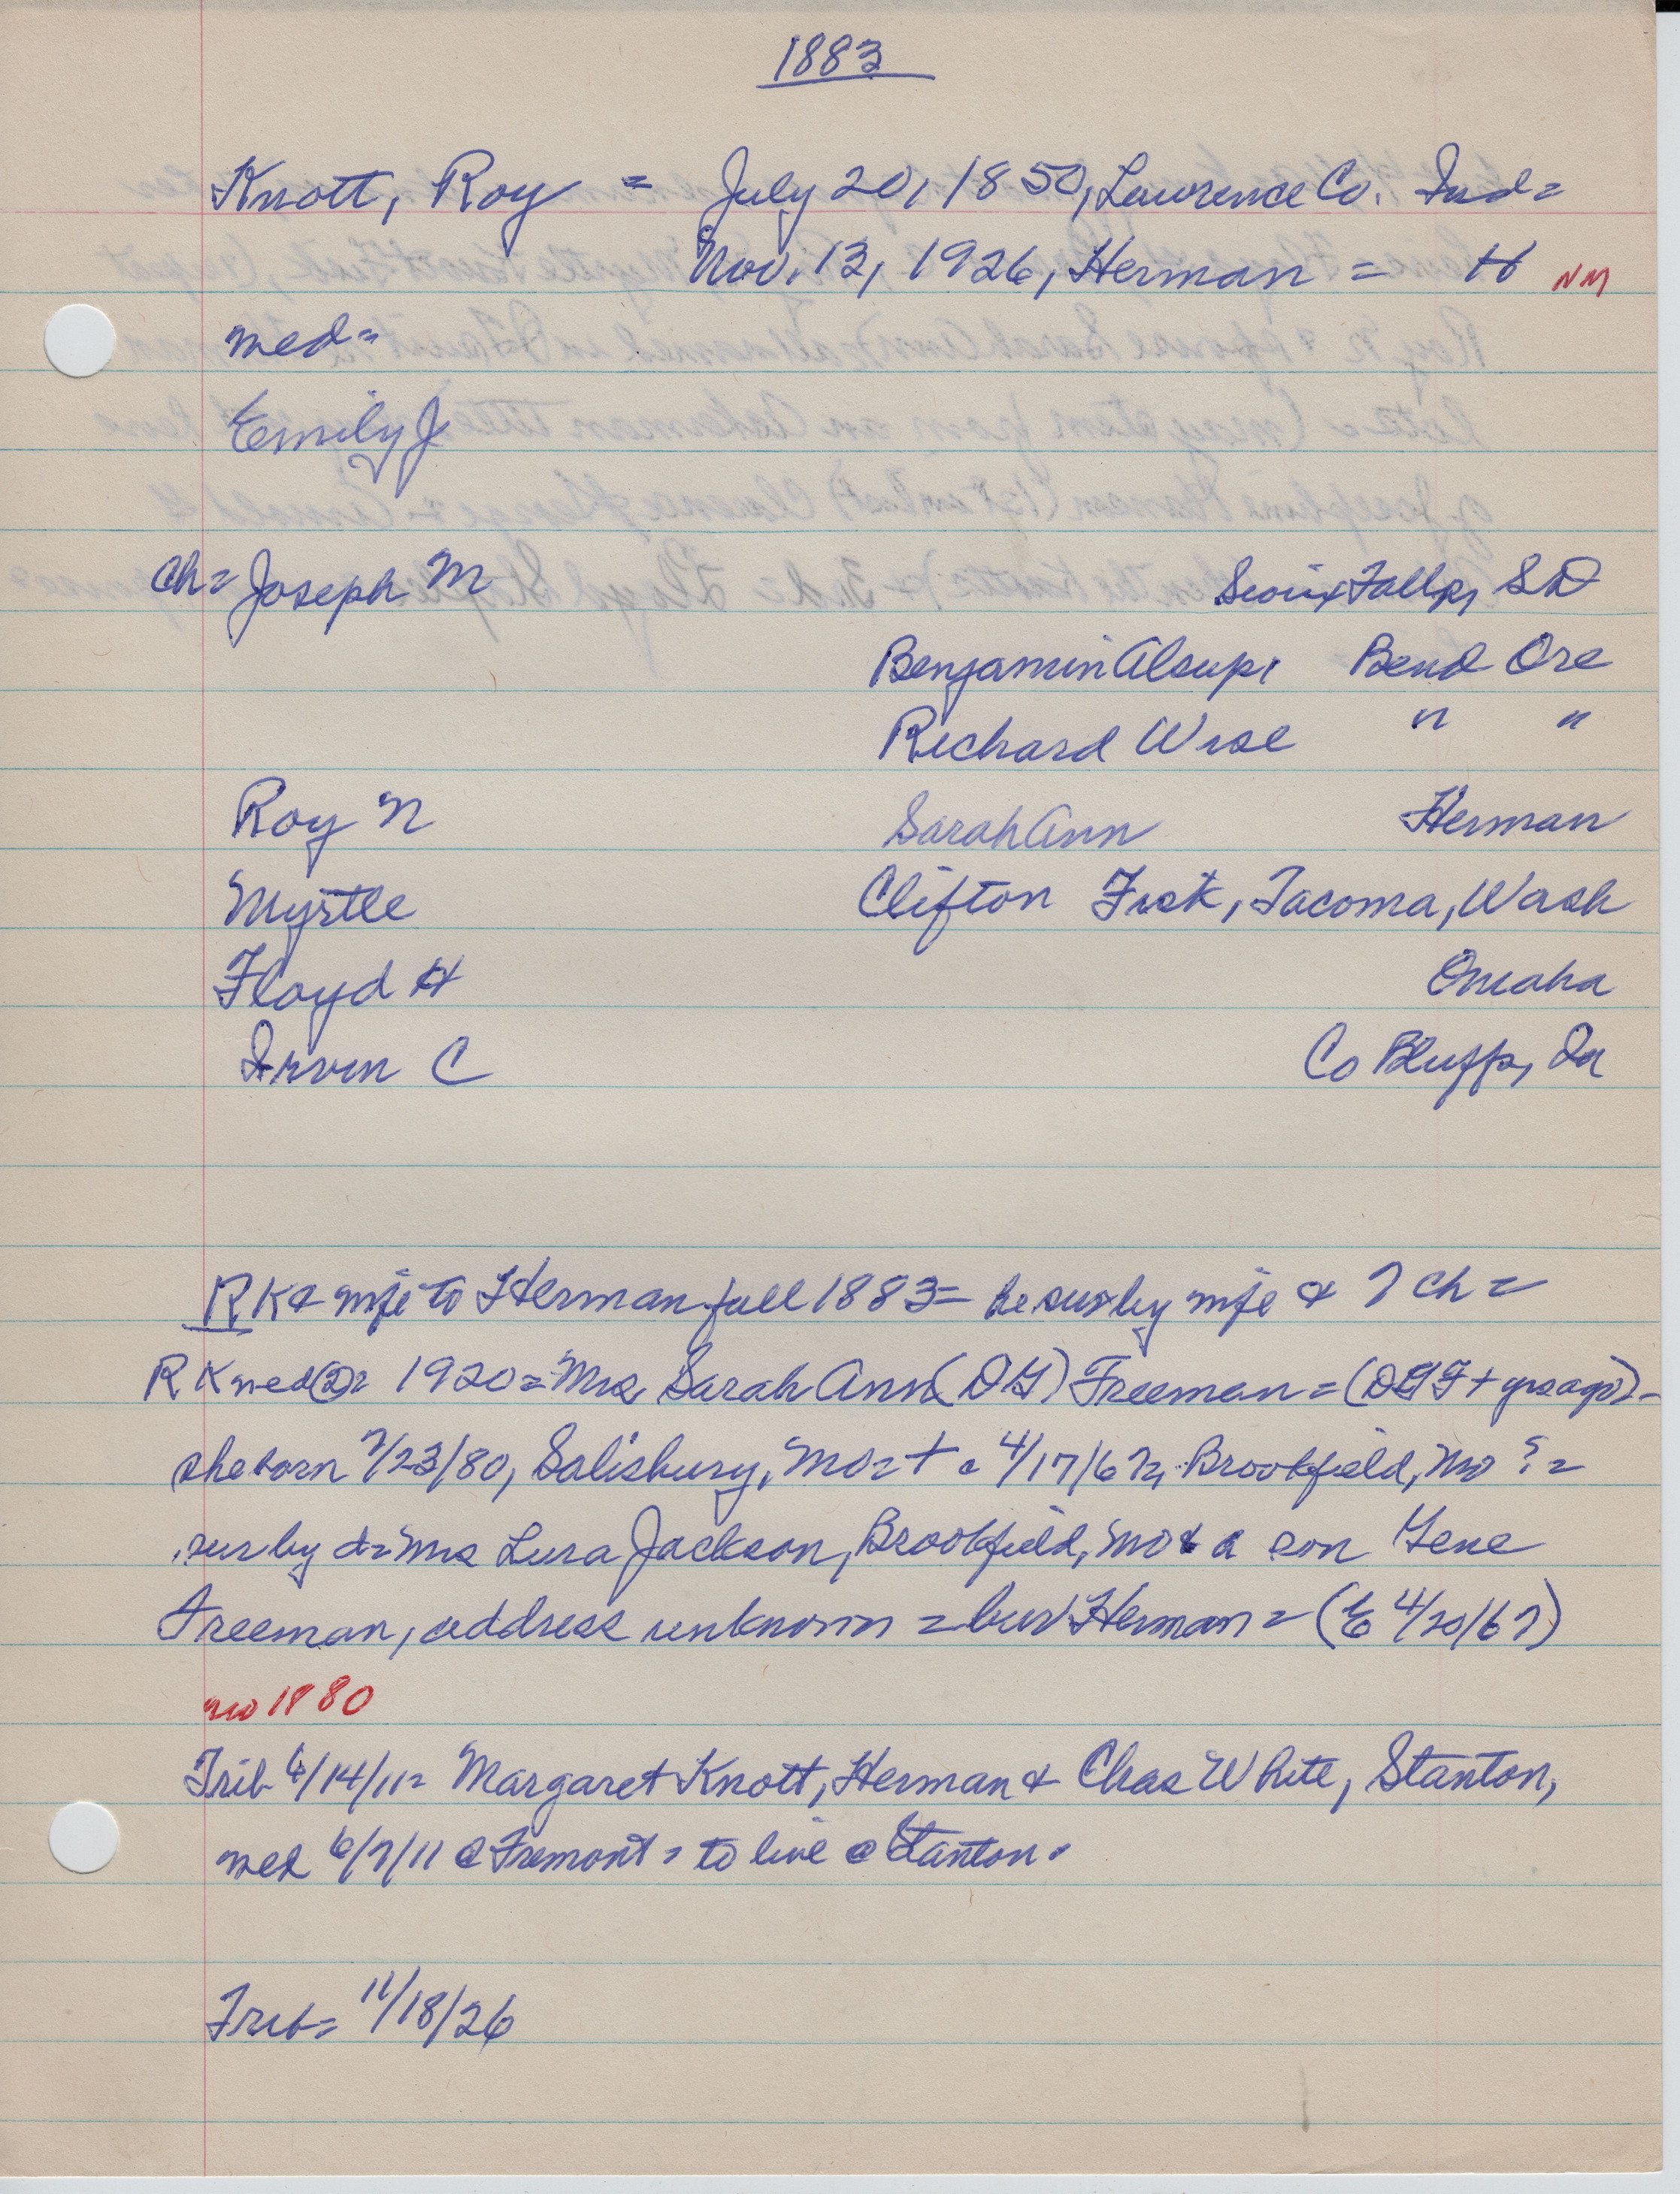 1883
Knott, Roy = July 20, 1850, Lawrence Co. Ind=
Nov. 13, 1926, Herman = H NM
med=
Emily J
Ch= Joseph M Sioux Falls, SD
Benjamin Alsup, Bend Ore
Richard Wise " "
Roy N Sarah Ann Herman
Myrtle Clifton Fisk, Tacoma, Wash
Floyd H Omaha
Irvin C Co Bluffs, Ia
RK & wife to Herman fall 1883 = he sur by wife & 7 ch =
RK med (2)= 1920 = Mrs. Sarah Ann (DG) Freeman = (DGF + yrs ago) -
she born 7/23/80, Salisbury, Mo = + @ 4/17/67, Brookfield, Mo ? =
sur by d = Mrs Lura Jackson, Brookfield, Mo & a son Gene
Freeman, address unknown = bur Herman = (E 4/20/67)
no 1880
Trib 6/14/11= Margaret Knott, Herman & Chas White, Stanton,
med 6/7/11 @ Fremont = to live @ Stanton.
Trib= 11/18/26